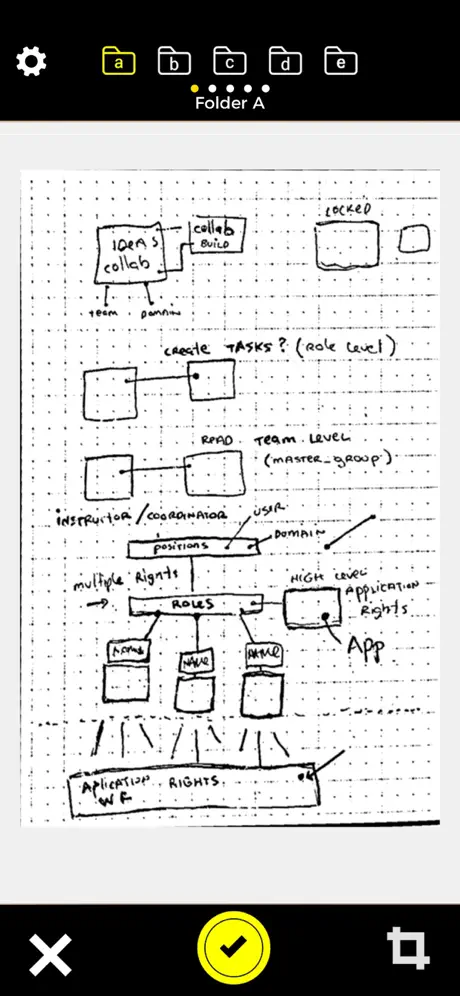 a b c d e
Folder A
LOCKED
IDEAS
collab
collab
BUILD
team
DOMAIN
create TASKS? (Role Level)
READ Team Level
(MASTER_group)
INSTRUCTOR/COORDINATOR
USER
POSITIONS
DOMAIN
multiple Rights
HIGH Level
APPLICATION
Rights
ROLES
App
NAME
NAME
NAME
APLICATION RIGHTS
WF